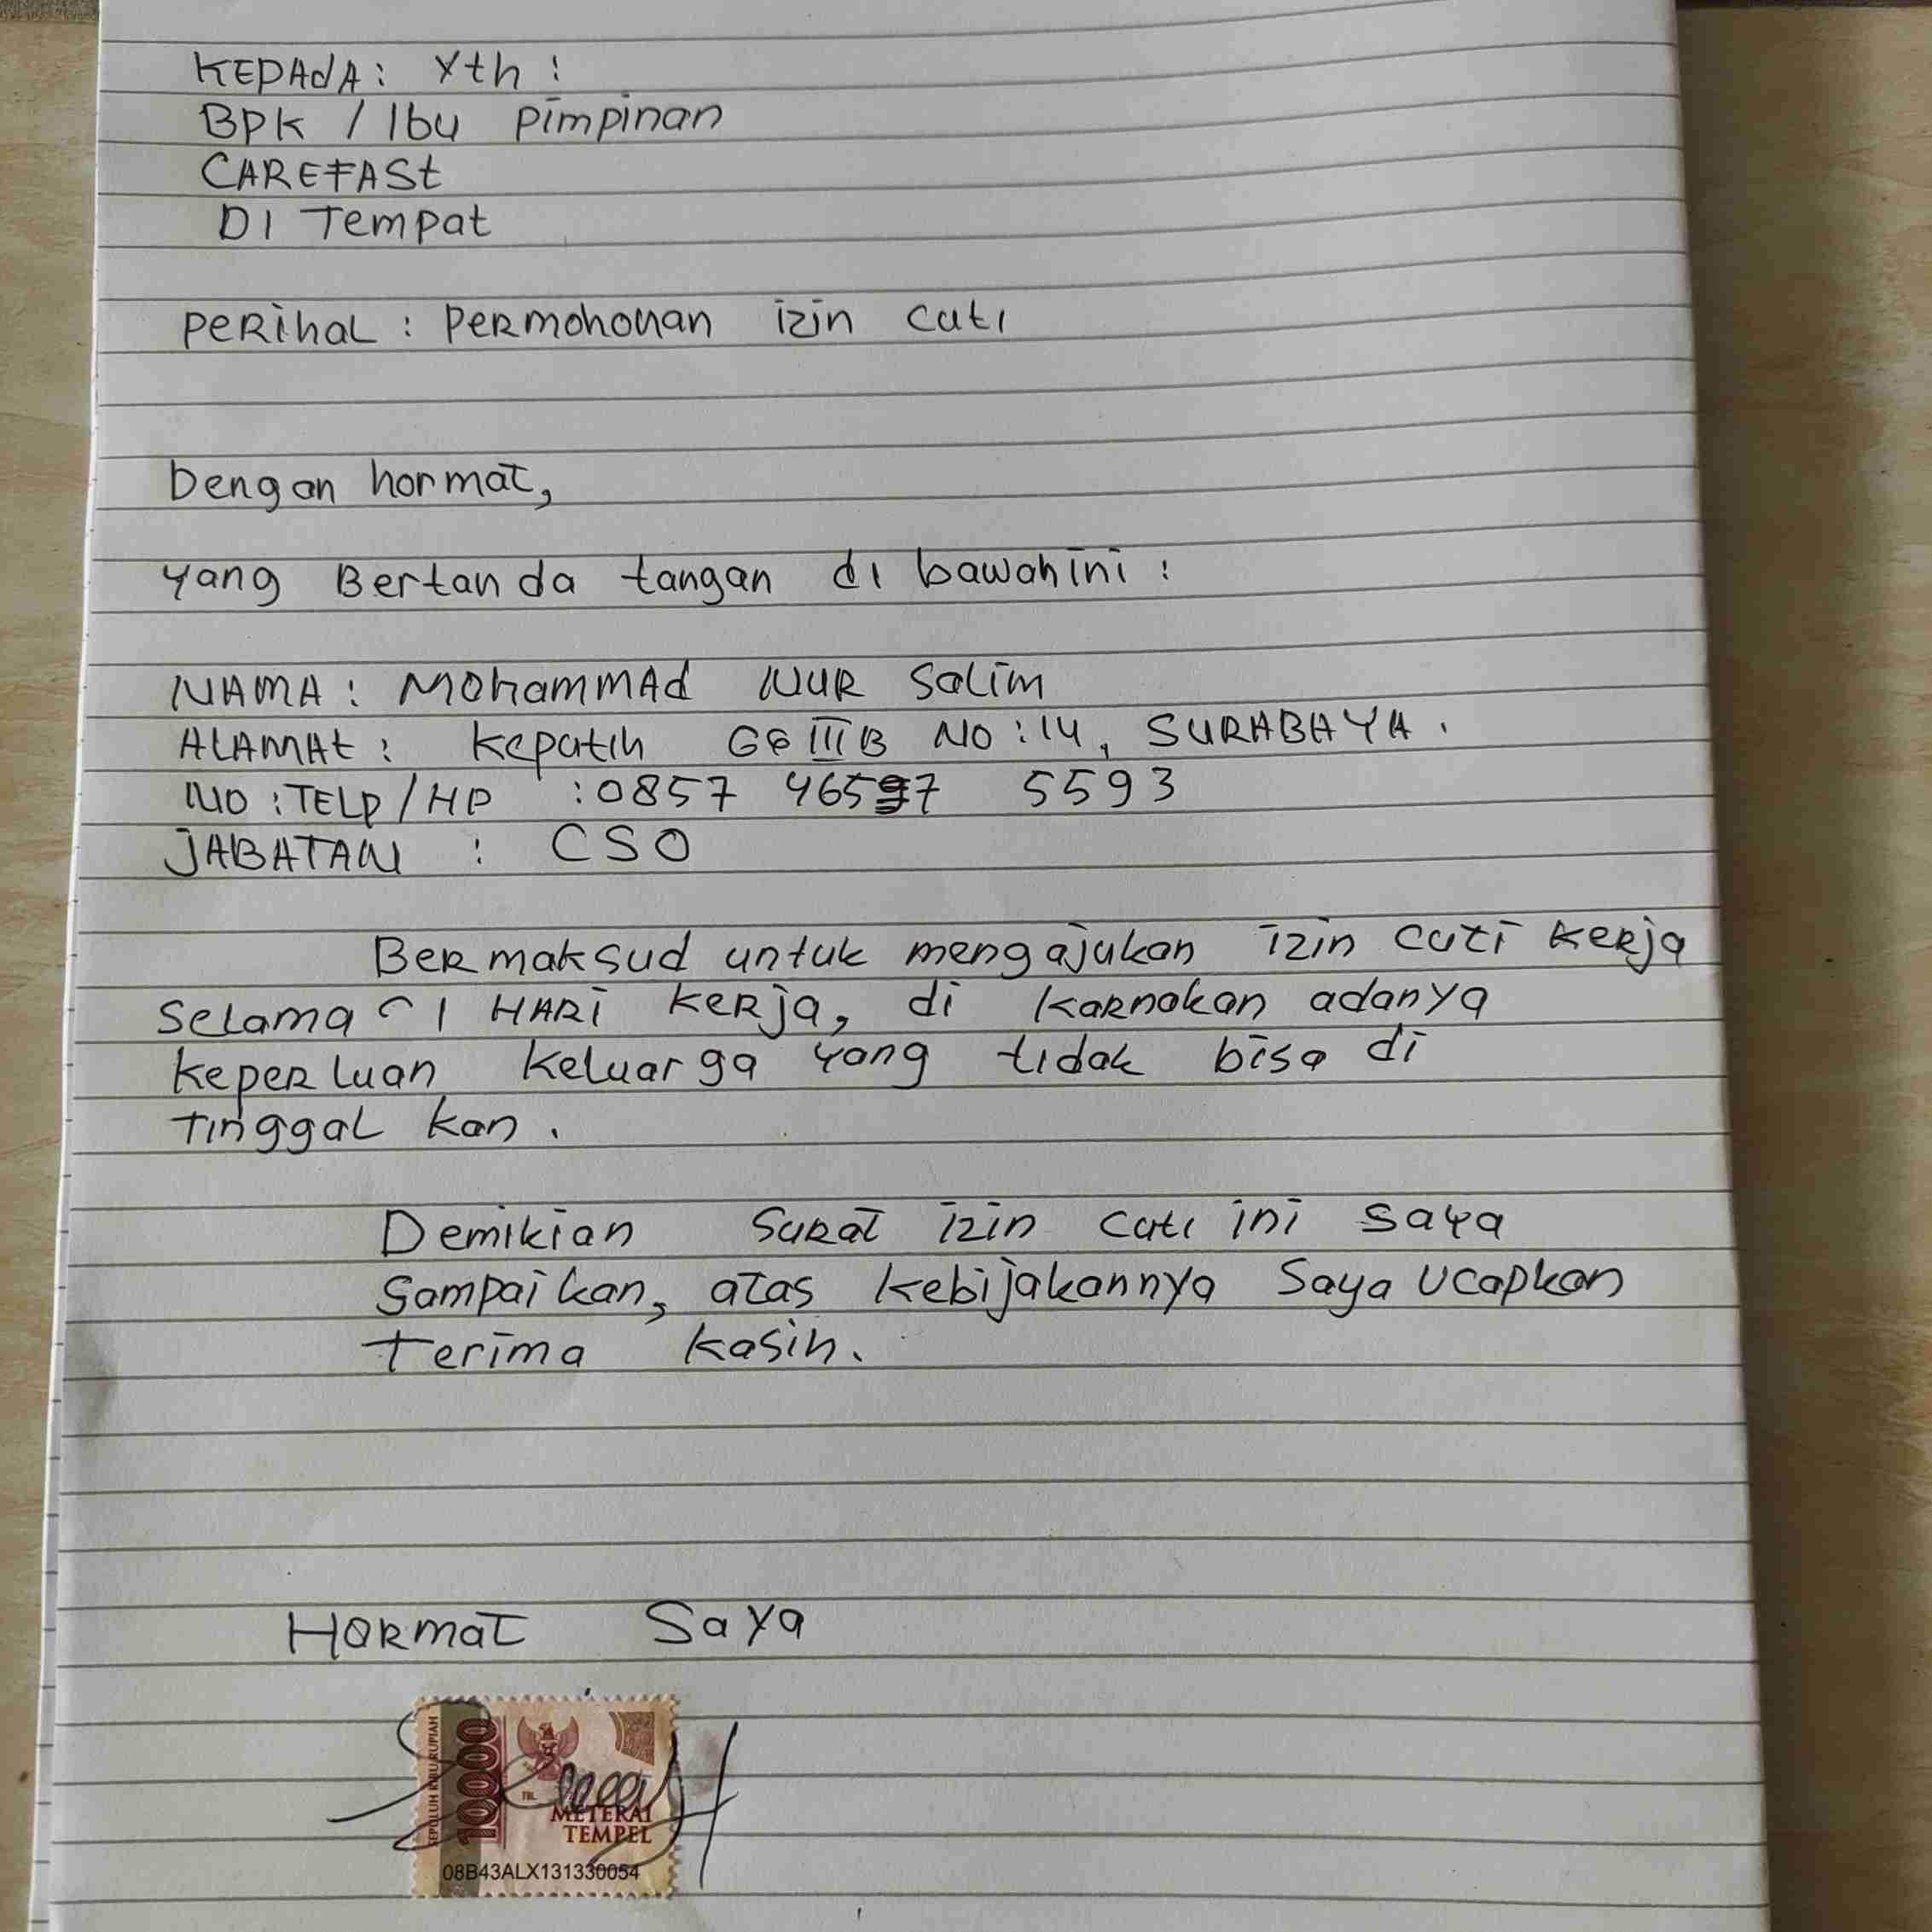 KEPAdA: Yth :
BPK / Ibu pimpinan
CAREFASt
DI Tempat
PERihaL : PERmohonan izin cuti
Dengan hormat,
Yang Bertanda tangan di bawah ini :
NAMA : MOhammAd NUR Salim
ALAMAt : Kepatih GG III B NO : 14, SURABAYA.
NO : TELP / HP : 0857 46597 5593
JABATAN : CSO
BERmaksud untuk mengajukan izin cuti kerja
selama 1 HARi kerja, di karnakan adanya
keperluan keluarga yang tidak bisa di
tinggal kan.
Demikian surat izin cuti ini saya
sampaikan, atas kebijakannya saya ucapkan
terima kasih.
HORmat Saya
SEPULUH RIBU RUPIAH
10000
TGL.
METERAI
TEMPEL
08B43ALX131330054